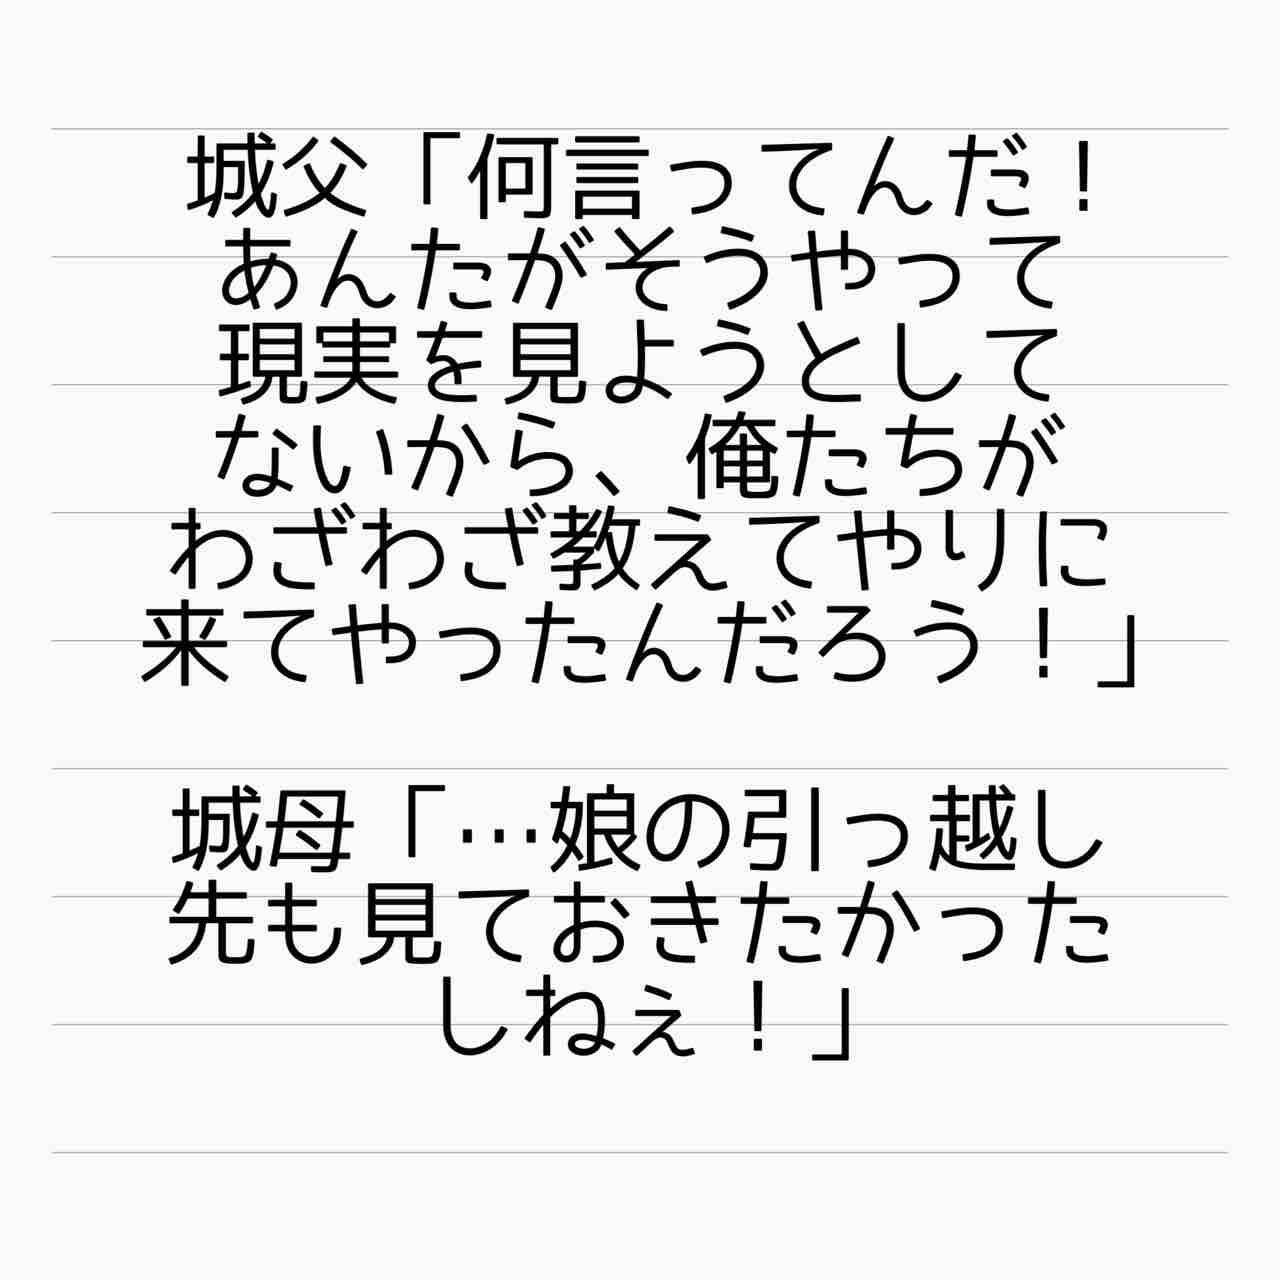 城父「何言ってんだ！
あんたがそうやって
現実を見ようとして
ないから、俺たちが
わざわざ教えてやりに
来てやったんだろう！」
城母「…娘の引っ越し
先も見ておきたかった
しねぇ！」